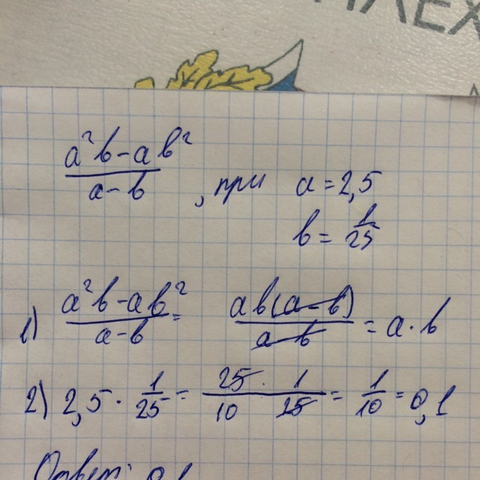 (a²b - ab²)/(a - b), при a = 2,5
b = 1/25
1) (a²b - ab²)/(a - b) = ab(a - b)/(a - b) = a · b
2) 2,5 · 1/25 = (25 · 1)/(10 25) = 1/10 = 0,1
Ответ: 0,1